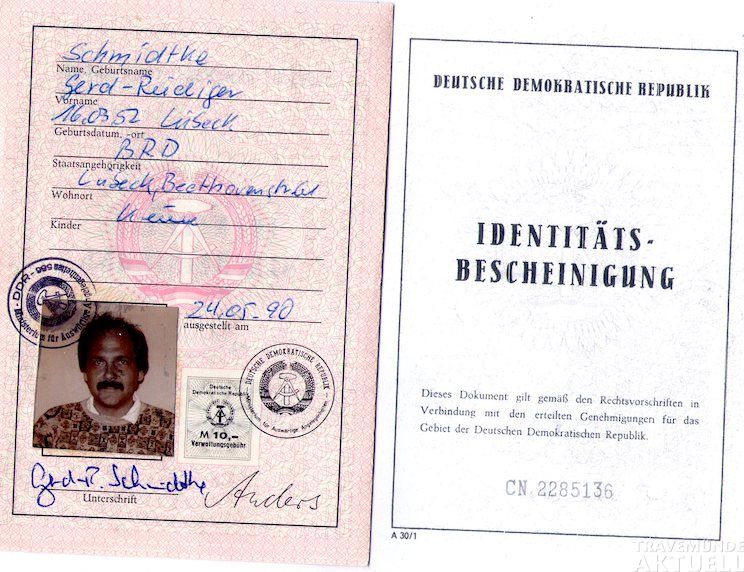 Schmidtke
Name, Geburtsname
Gerd-Rüdiger
Vorname
16.03.52 Lübeck
Geburtsdatum, -ort
BRD
Staatsangehörigkeit
Lübeck, Beethovenstr.
Wohnort
Keine
Kinder
24.05.90
ausgestellt am
DDR
Ministerium für Auswärtige Angelegenheiten
Deutsche
Demokratische Republik
M 10,-
Verwaltungsgebühr
DEUTSCHE DEMOKRATISCHE REPUBLIK
Ministerium für Auswärtige Angelegenheiten
Gerd-R. Schmidtke
Unterschrift
Anders
DEUTSCHE DEMOKRATISCHE REPUBLIK
IDENTITÄTS-
BESCHEINIGUNG
Dieses Dokument gilt gemäß den Rechtsvorschriften in
Verbindung mit den erteilten Genehmigungen für das
Gebiet der Deutschen Demokratischen Republik.
CN 2285136
A 30/1
TRAVEMÜNDE
AKTUELL